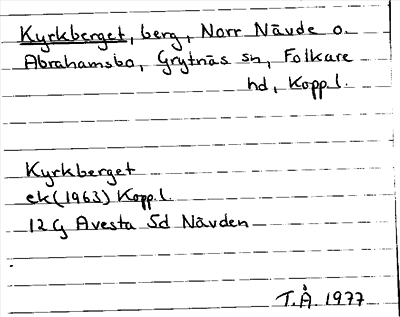 Kyrkberget, berg, Norr Nävde o.
Abrahamsbo, Grytnäs sn, Folkare
hd, Kopp.l.
Kyrkberget
ek(1963) Kopp.l.
12 G Avesta 5d Nävden
T.Å. 1977